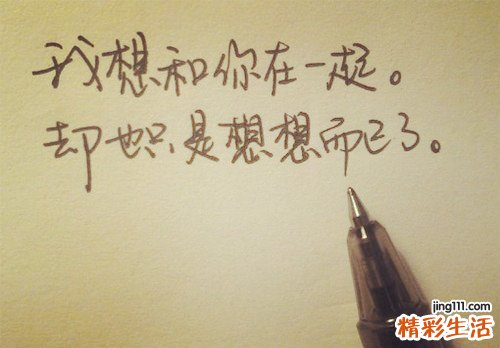 我想和你在一起。
却也只是想想而已了。
jing111.com
精彩生活